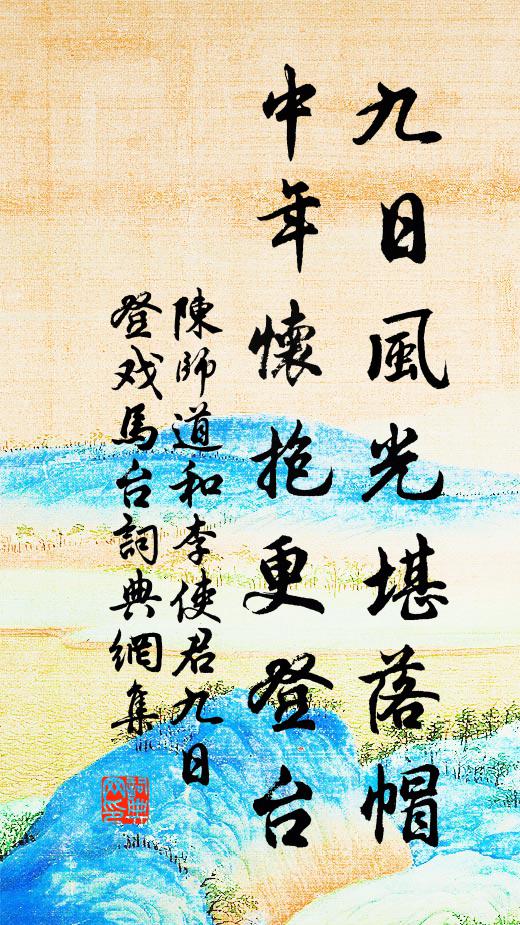 九日風光堪落帽
中年懷抱更登台
陳師道和李使君九日
登戏馬台詞典網集